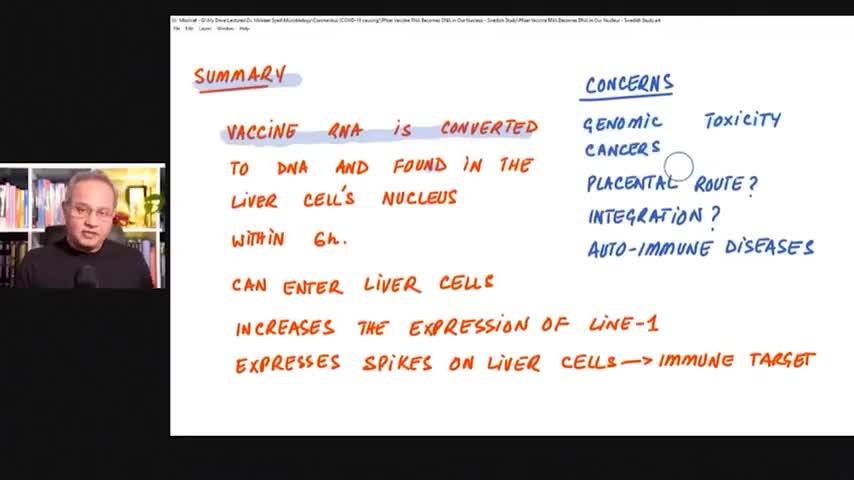 Mischief - G:\My Drive\Lectures\Dr. Mobeen Syed\Microbiology\Coronavirus (COVID-19 causing)\Pfizer Vaccine RNA Becomes DNA in Our Nucleus - Swedish Study\Pfizer Vaccine RNA Becomes DNA in Our Nucleus - Swedish Study.art
File Edit Layers Window Help
SUMMARY
VACCINE RNA is CONVERTED
TO DNA AND FOUND IN THE
LIVER CELL'S NUCLEUS
WITHIN 6h.
CAN ENTER LIVER CELLS
INCREASES THE EXPRESSION OF LINE-1
EXPRESSES SPIKES ON LIVER CELLS → IMMUNE TARGET
CONCERNS
GENOMIC TOXICITY
CANCERS
PLACENTAL ROUTE?
INTEGRATION?
AUTO-IMMUNE DISEASES